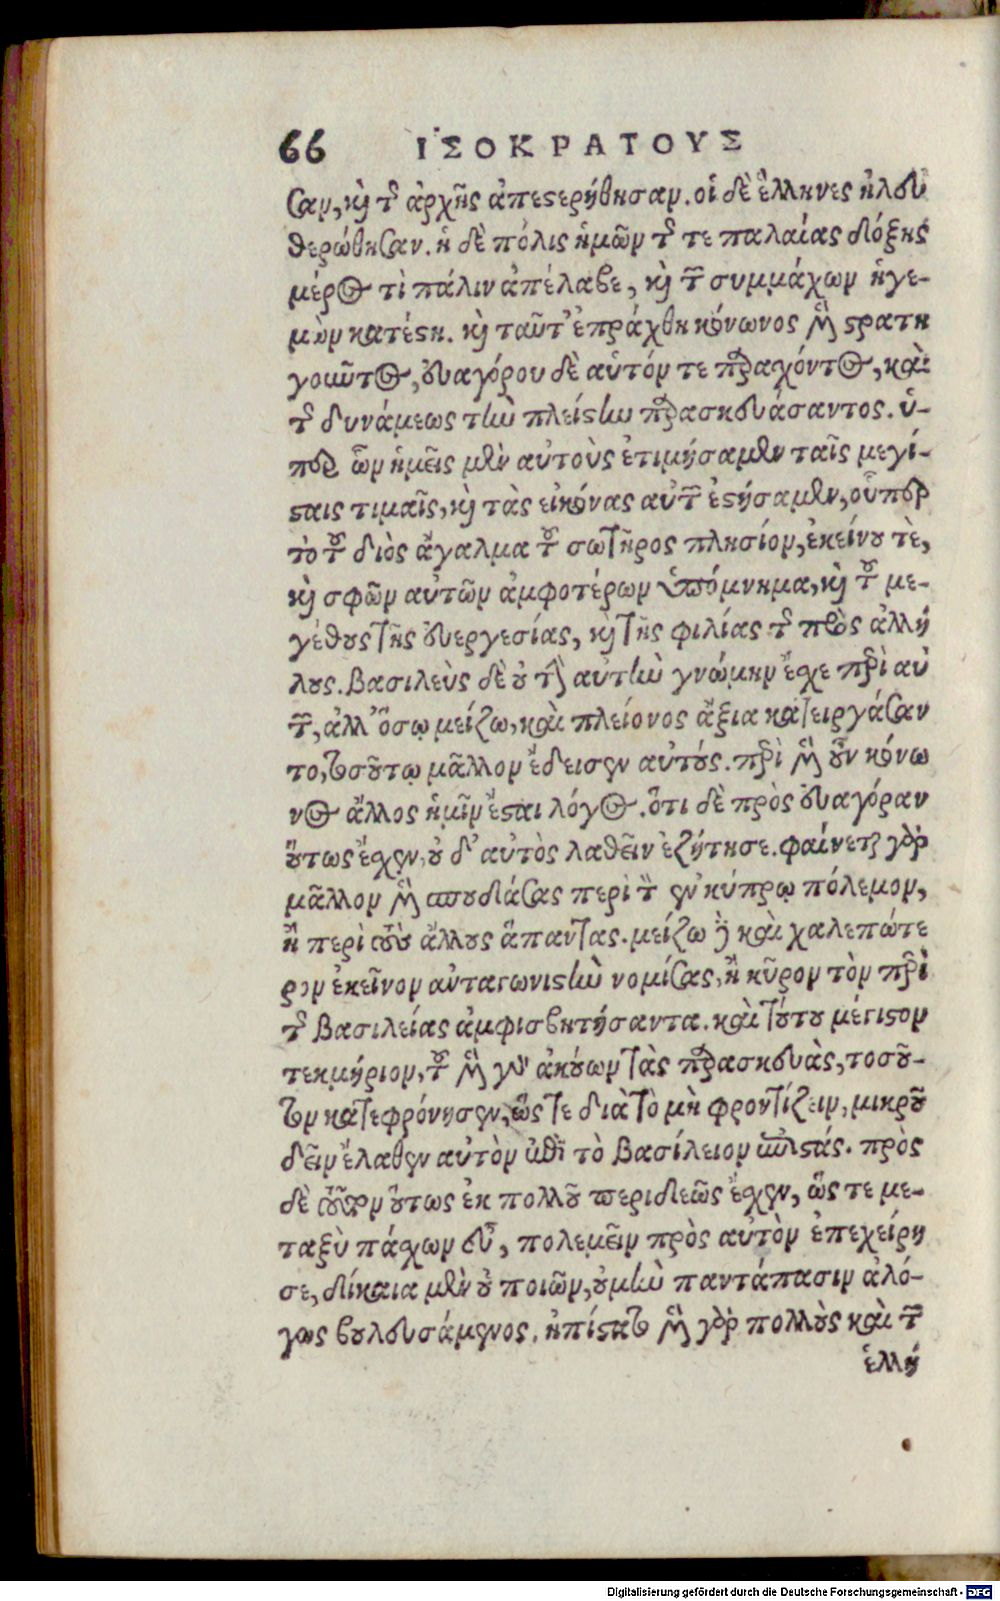 66 ἸΣΟΚΡΑΤΟΥΣ
σαν, καὶ τῆς ἀρχῆς ἀπεστερήθησαν. οἱ δὲ ἕλληνες ἠλευ
θερώθησαν. ἡ δὲ πόλις ἡμῶν τῆς τε παλαιᾶς δόξης
μέρος τὶ πάλιν ἀπέλαβε, καὶ τῶν συμμάχων ἡγε-
μὼν κατέστη. καὶ ταῦτ' ἐπράχθη κόνωνος μὲν στρατη
γοῦντος, ἐυαγόρου δὲ αὑτόν τε παρασχόντος, καὶ
τῆς δυνάμεως τὴν πλείστην παρασκευάσαντος. ὑ-
πὲρ ὧν ἡμεῖς μὲν αὐτοὺς ἐτιμήσαμεν ταῖς μεγί-
σταις τιμαῖς, καὶ τὰς εἰκόνας αὐτῶν ἐστήσαμεν, οὗπερ
τὸ τοῦ διὸς ἄγαλμα τοῦ σωτῆρος πλησίον, ἐκείνου τὲ,
καὶ σφῶν αὐτῶν ἀμφοτέρων ὑπόμνημα, καὶ τοῦ με-
γέθους τῆς ἐυεργεσίας, καὶ τῆς φιλίας τῆς πρὸς ἀλλή
λους. βασιλεὺς δὲ οὐ τὴν αὐτὴν γνώμην ἔσχε περὶ αὐ
τῶν, ἀλλ' ὅσῳ μείζω, καὶ πλείονος ἄξια κατειργάσαν
το, τοσούτῳ μᾶλλον ἔδεισεν αὐτούς. περὶ μὲν οὖν κόνω
νος ἄλλος ἡμῖν ἔσται λόγος. ὅτι δὲ πρὸς ἐυαγόραν
οὕτως ἔσχεν, οὐ δ' αὐτὸς λαθεῖν ἐζήτησε. φαίνεται γὰρ
μᾶλλον μὲν σπουδάσας περὶ τὸν ἐν κύπρῳ πόλεμον,
ἢ περὶ τοὺς ἄλλους ἅπαντας. μείζω δὲ καὶ χαλεπώτε
ρον ἐκεῖνον ἀνταγωνιστὴν νομίσας, ἢ κῦρον τὸν περὶ
τῆς βασιλείας ἀμφισβητήσαντα. καὶ τούτου μέγιστον
τεκμήριον, τοῦ μὲν γὰρ ἀκούων τὰς παρασκευὰς, τοσοῦ-
τον κατεφρόνησεν, ὥστε διὰ τὸ μὴ φροντίζειν, μικροῦ
δεῖν ἔλαθεν αὐτὸν ἐπὶ τὸ βασίλειον ἐπιστάς. πρὸς
δὲ τοῦτον οὕτως ἐκ πολλοῦ περιδεῶς ἔσχεν, ὥς τε με-
ταξὺ πάσχων εὖ, πολεμεῖν πρὸς αὐτὸν ἐπεχείρη
σε, δίκαια μὲν οὐ ποιῶν, οὐ μὴν παντάπασιν ἀλό-
γως βουλευσάμενος. ἠπίστατο μὲν γὰρ πολλοὺς καὶ τῶν
ἑλλή
Digitalisierung gefördert durch die Deutsche Forschungsgemeinschaft - DFG